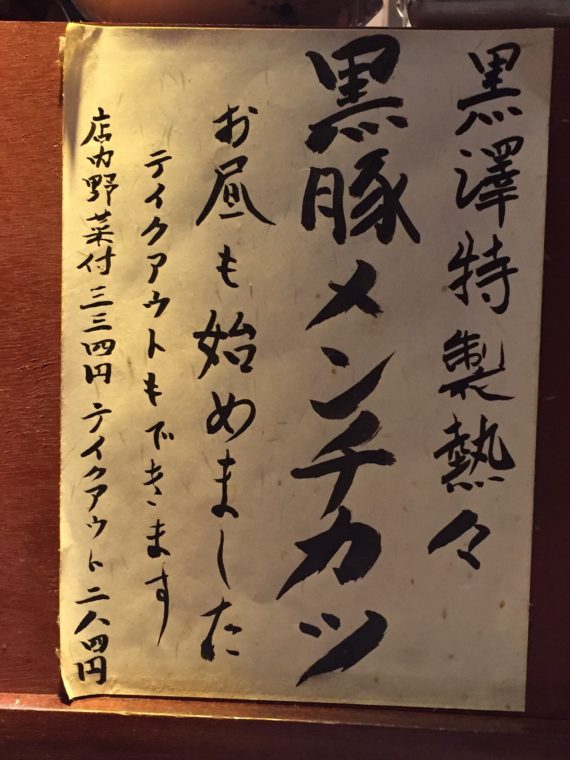 黒澤特製熱々
黒豚メンチカツ
お昼も始めました
テイクアウトもできます
店内野菜付三三四円テイクアウト二八四円